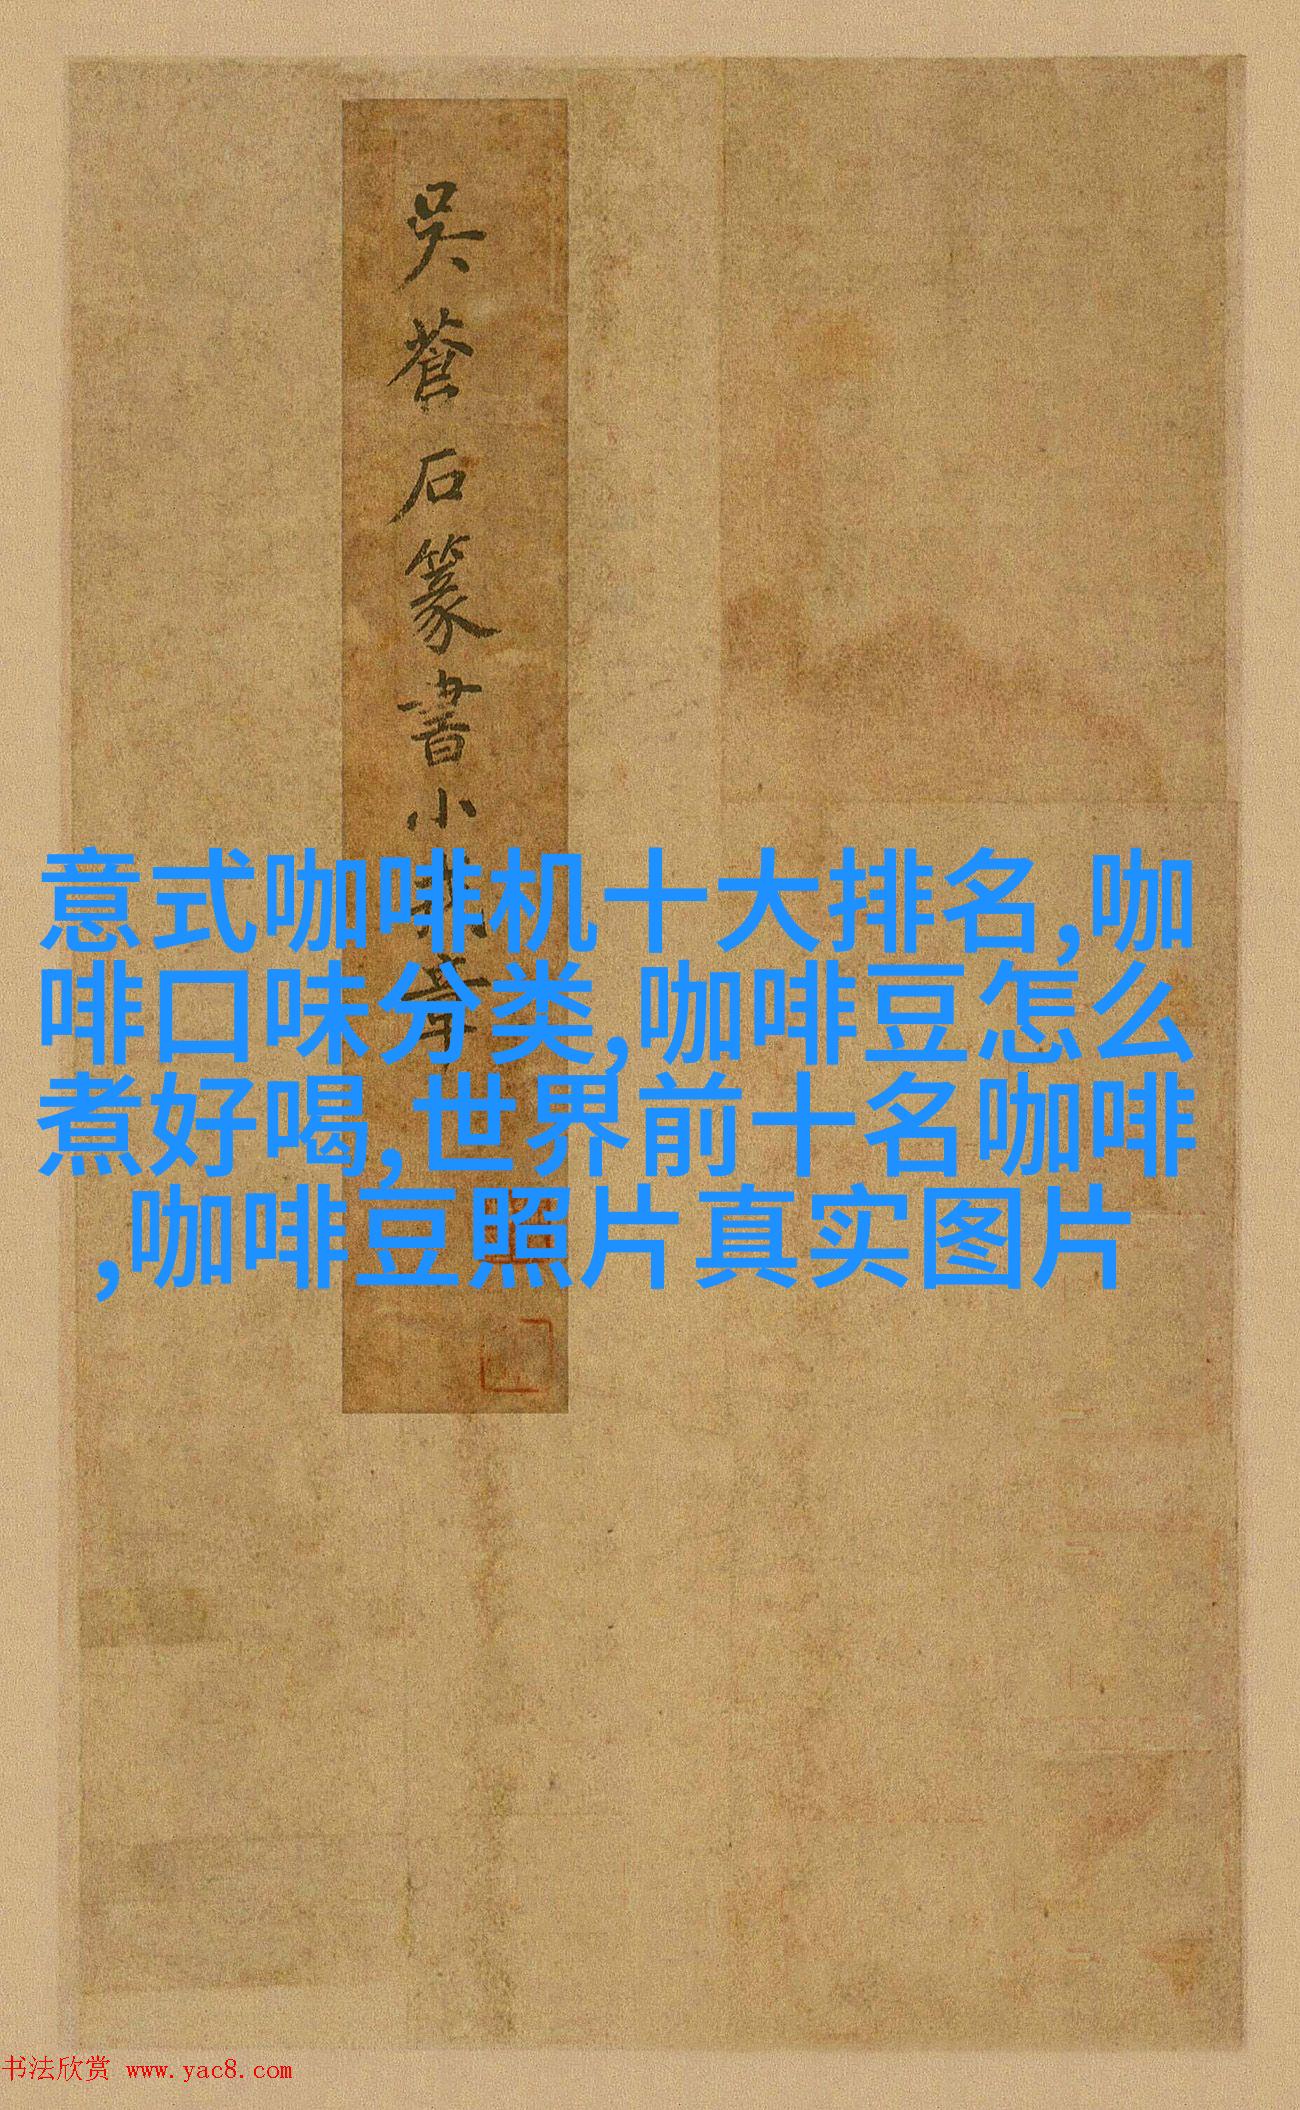 吳蒼石篆書小我章
意式咖啡机十大排名,咖
啡口味分类,咖啡豆怎么
煮好喝,世界前十名咖啡
,咖啡豆照片真实图片
书法欣赏 www.yac8.com